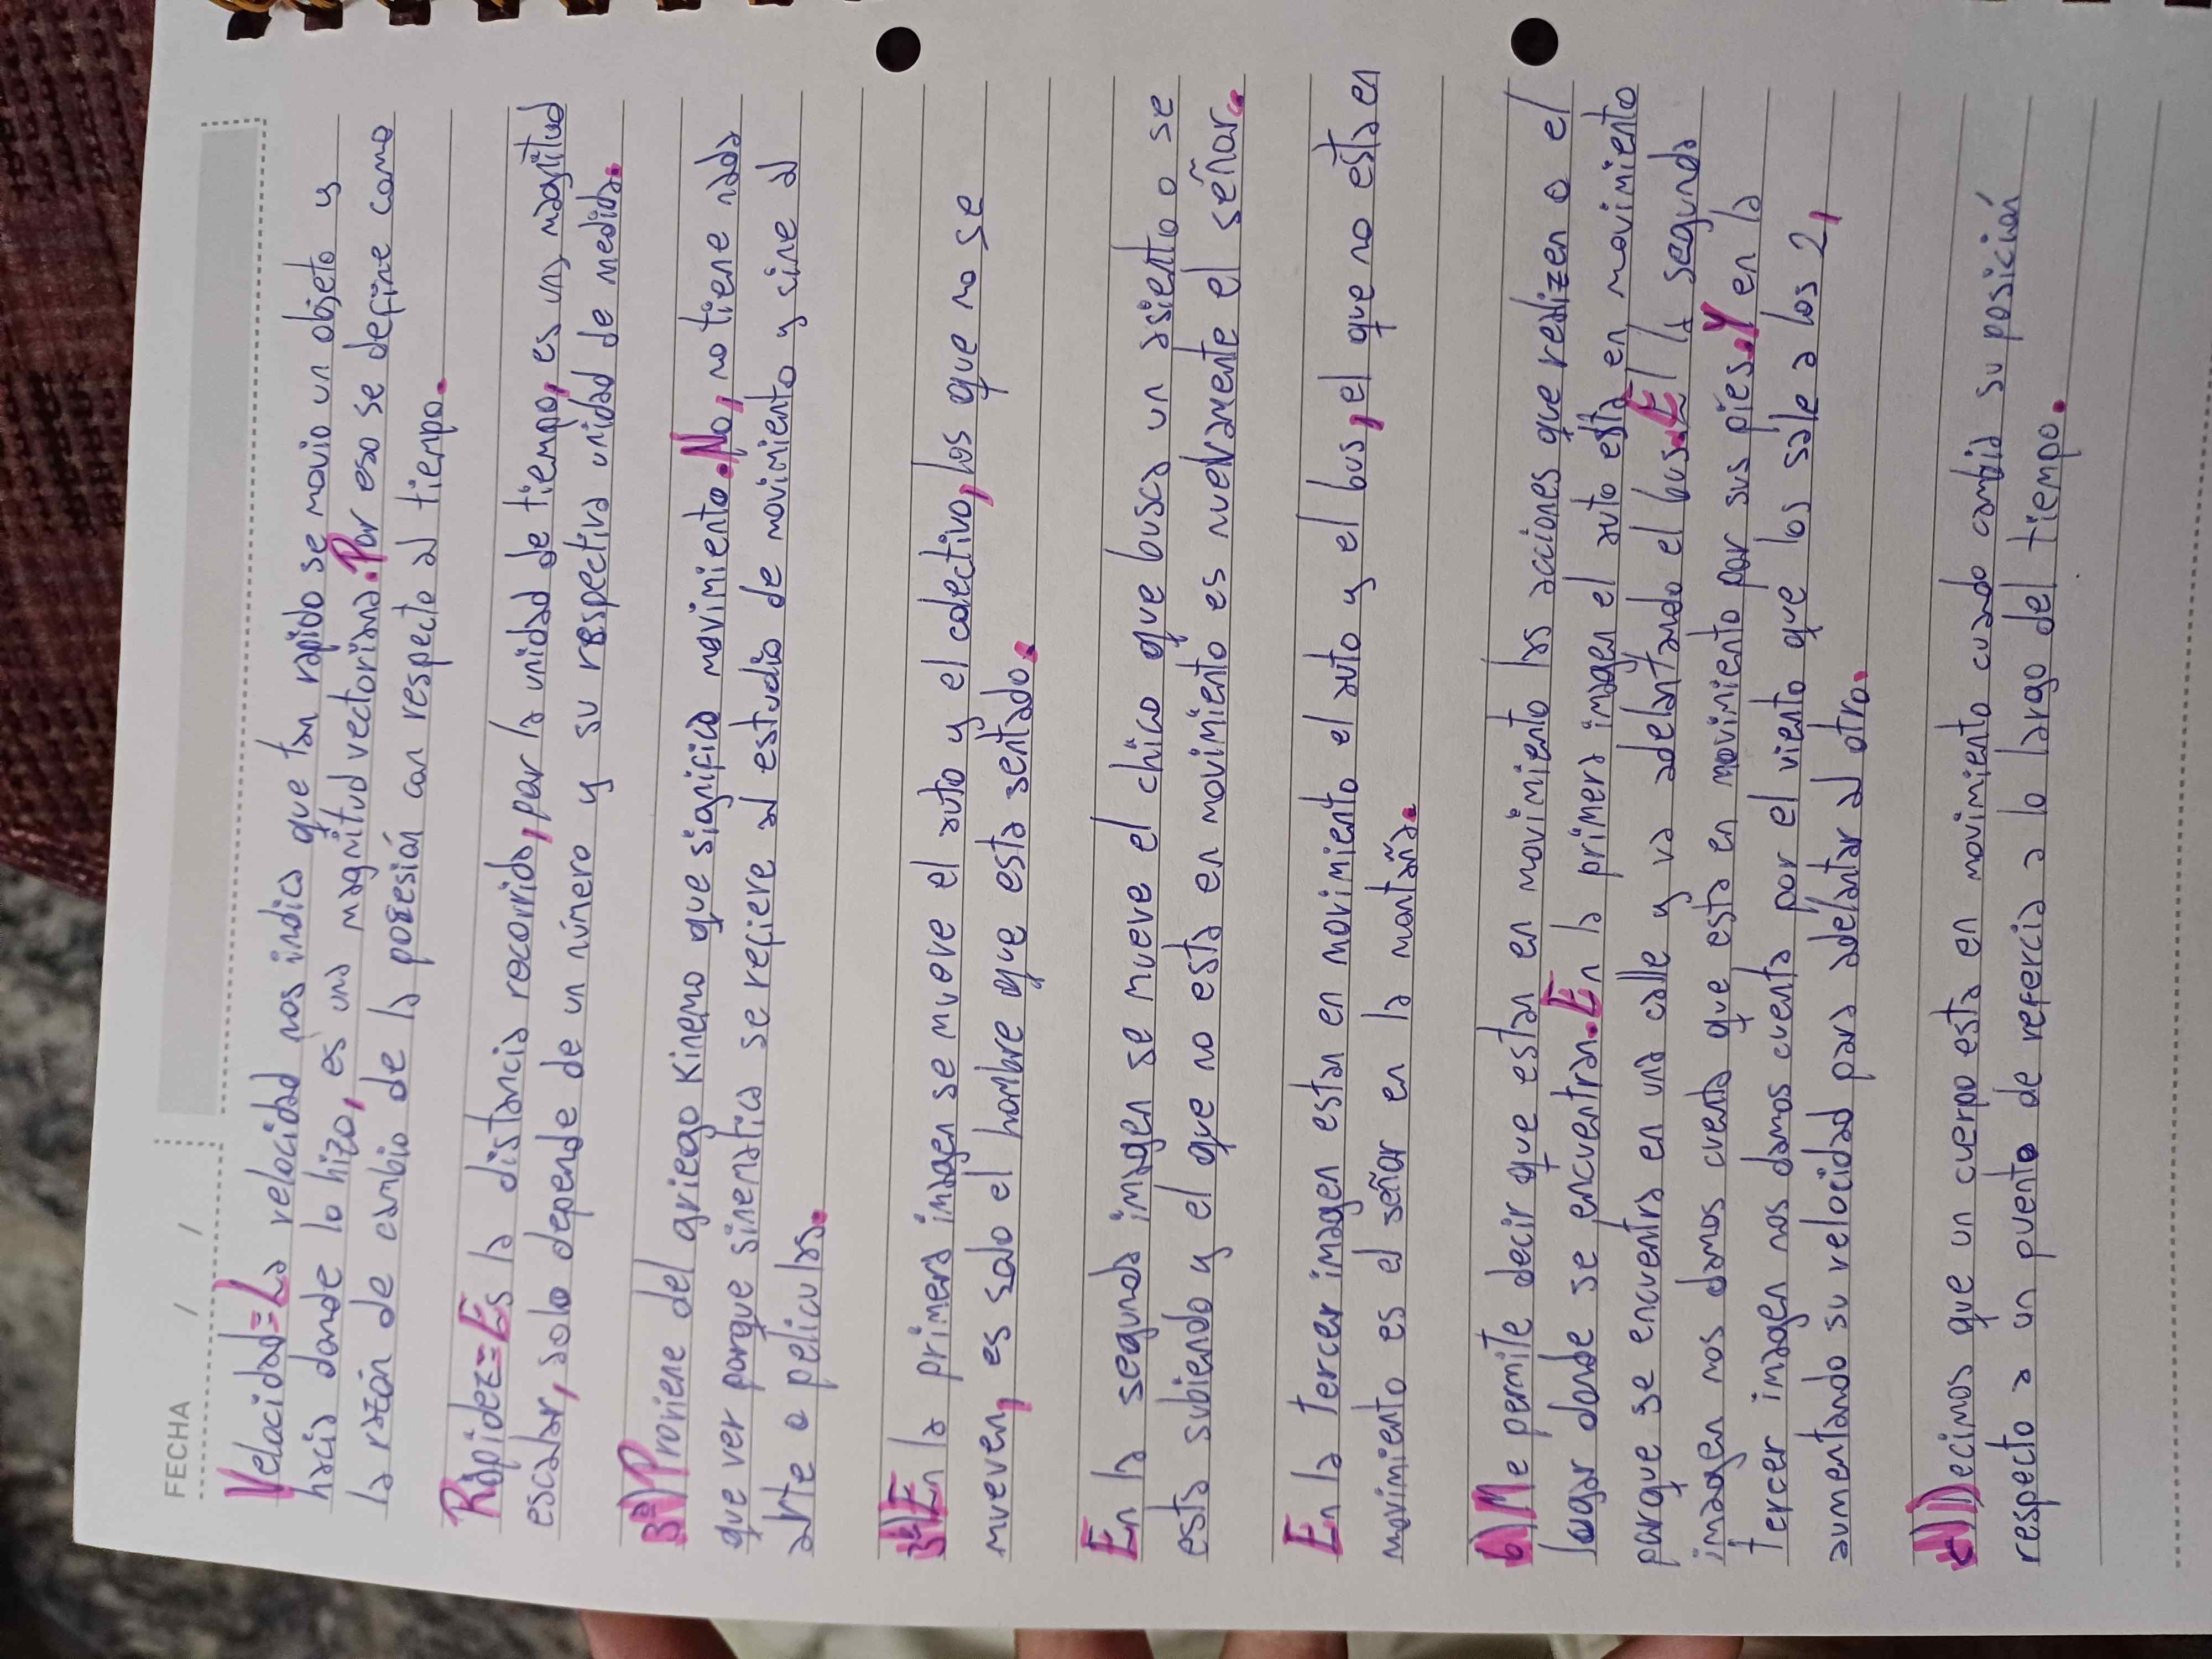 FECHA / /
Velocidad=La velocidad nos indica que tan rapido se movio un objeto y
hacia donde lo hizo, es una magnitud vectoriana. Por eso se define como
la razón de cambio de la posesión con respecto al tiempo.
Rapidez=Es la distancia recorrida, por la unidad de tiempo, es una magnitud
escalar, solo depende de un número y su respectiva unidad de medida.
3ª) Proviene del griego Kinemo que significa movimiento. No, no tiene nada
que ver porque sinematica se refiere al estudio de movimiento y sine al
arte o peliculas.
En la primera imagen se mueve el auto y el colectivo, los que no se
mueven, es solo el hombre que esta sentado.
En la segunda imagen se mueve el chico que busca un asiento o se
esta subiendo y el que no esta en movimiento es nuevamente el señor.
En la tercer imagen estan en movimiento el auto y el bus, el que no esta en
movimiento es el señor en la montaña.
b) Me permite decir que estan en movimiento las acciones que realizen o el
lugar donde se encuentran. En la primera imagen el auto esta en movimiento
porque se encuentra en una calle y va adelantando el bus. El la segunda
imagen nos damos cuenta que esta en movimiento por sus pies. Y en la
tercer imagen nos damos cuenta por el viento que los sale a los 2,
aumentando su velocidad para adelantar al otro.
Decimos que un cuerpo esta en movimiento cuando cambia su posición
respecto a un puento de refercia a lo largo del tiempo.